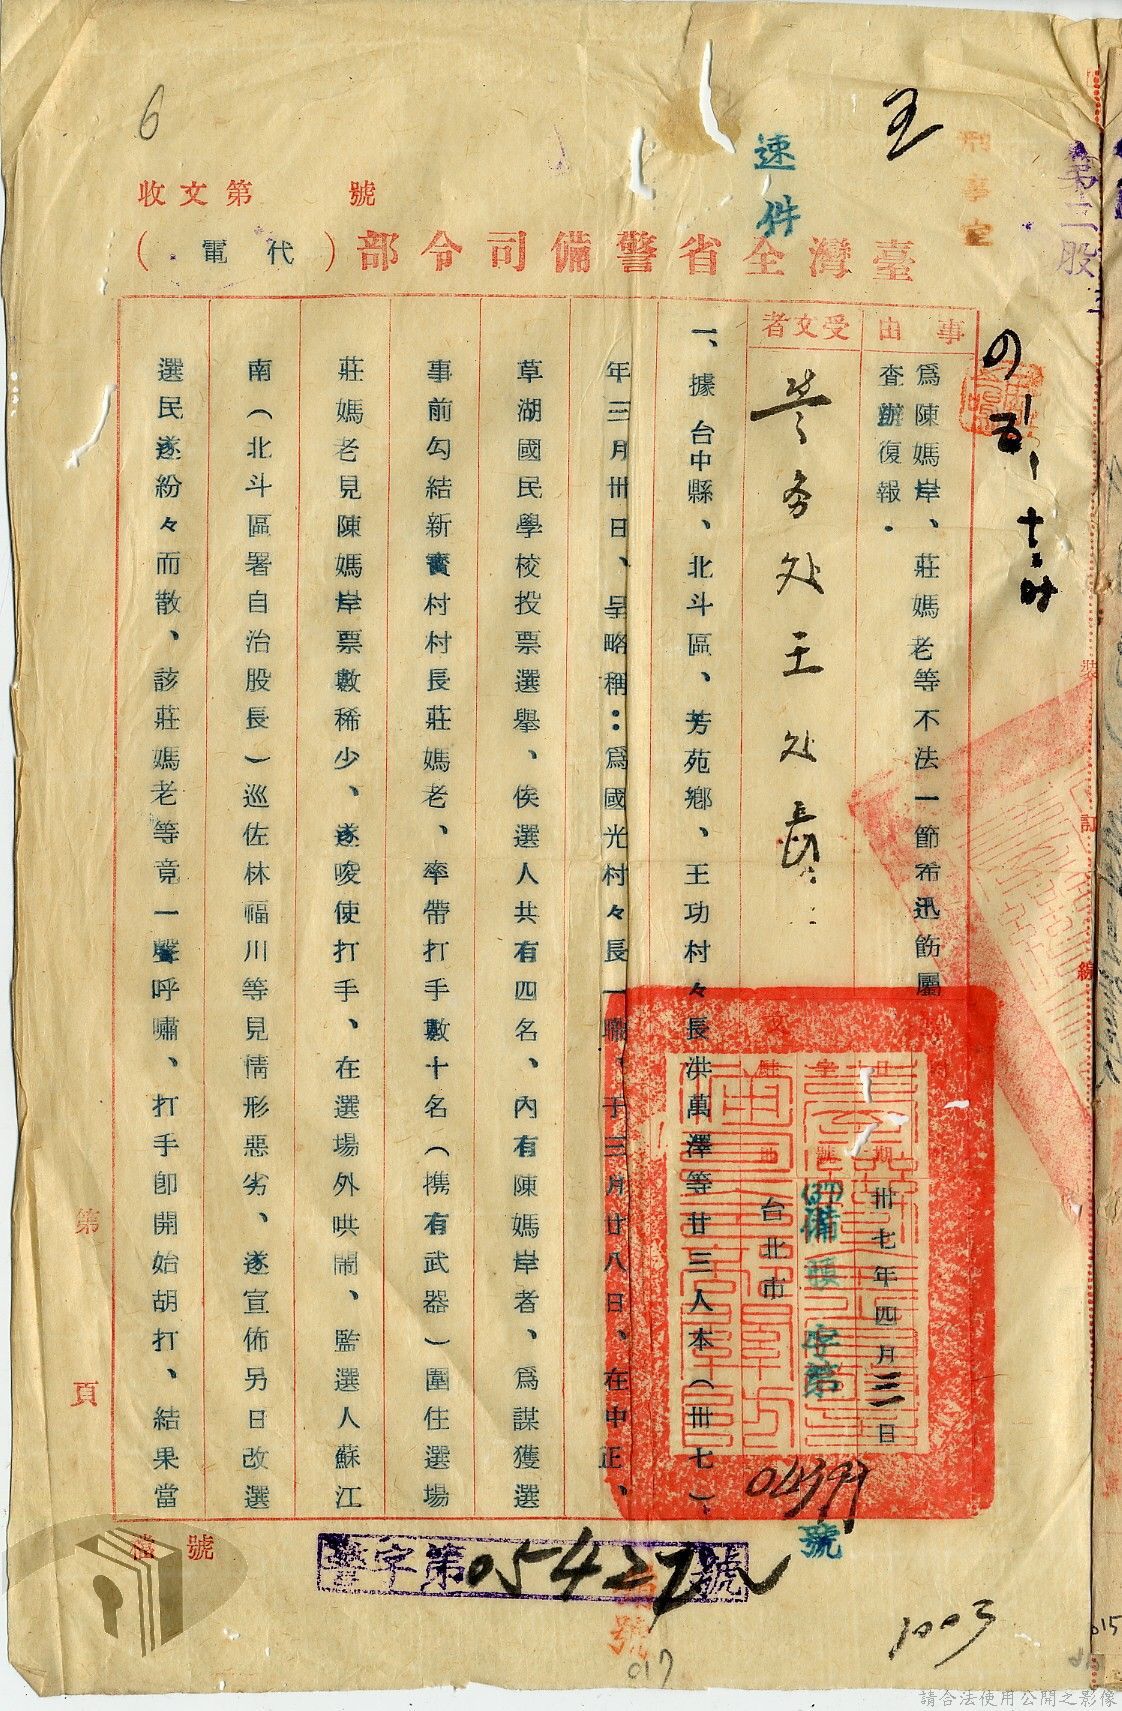 6
王
速件
刑事室
第三股
收文第　號
臺灣全省警備司令部（代電）
事由
爲陳媽岸、莊媽老等不法一節希迅飭屬
查辦復報．
受文者
警务处王处長
卅七年四月三日
(37)備
字第
04399
號
台北市
一、據台中縣、北斗區、芳苑鄉、王功村々長洪萬澤等廿三人本（卅七）
年三月卅日、呈略稱：爲國光村々長一職、于三月廿八日、在中正、
草湖國民學校投票選舉、俟選人共有四名、內有陳媽岸者、爲謀獲選
事前勾結新寶村村長莊媽老、率帶打手數十名（携有武器）圍住選場
莊媽老見陳媽岸票數稀少、遂唆使打手、在選場外哄鬧、監選人蘇江
南（北斗區署自治股長）巡佐林福川等見情形惡劣、遂宣佈另日改選
選民遂紛々而散、該莊媽老等竟一聲呼嘯、打手卽開始胡打、結果當
第　頁
檔號
警字第05427號
號
1003
017
015
裝
訂
線
請合法使用公開之影像